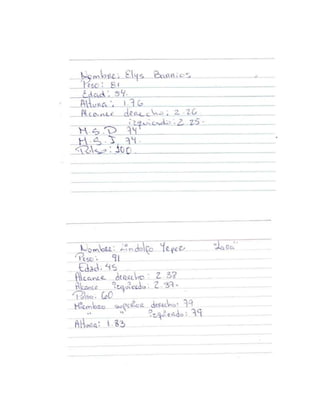 Nombre: Elys Barrios
Peso: 81
Edad: 54.
Altura: 1.76
Alcance derecho: 2.26
izquierdo: 2.25.
M.S.D 74
M.S.I 74.
Pulso: 100.
Nombre: Lindolfo Yepez "Lara"
Peso: 91
Edad: 45
Alcance derecho: 2.37
Alcance izquierdo: 2.37.
Pulso: 60
Miembro superior derecho: 79
" " izquierdo: 79
Altura: 1.83